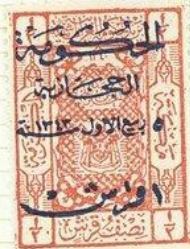 الحكومة
الحجازية
٥ ربيع الاول سنة ١٣٤٣
١ قرش
١/٢ نصف قرش ١/٢